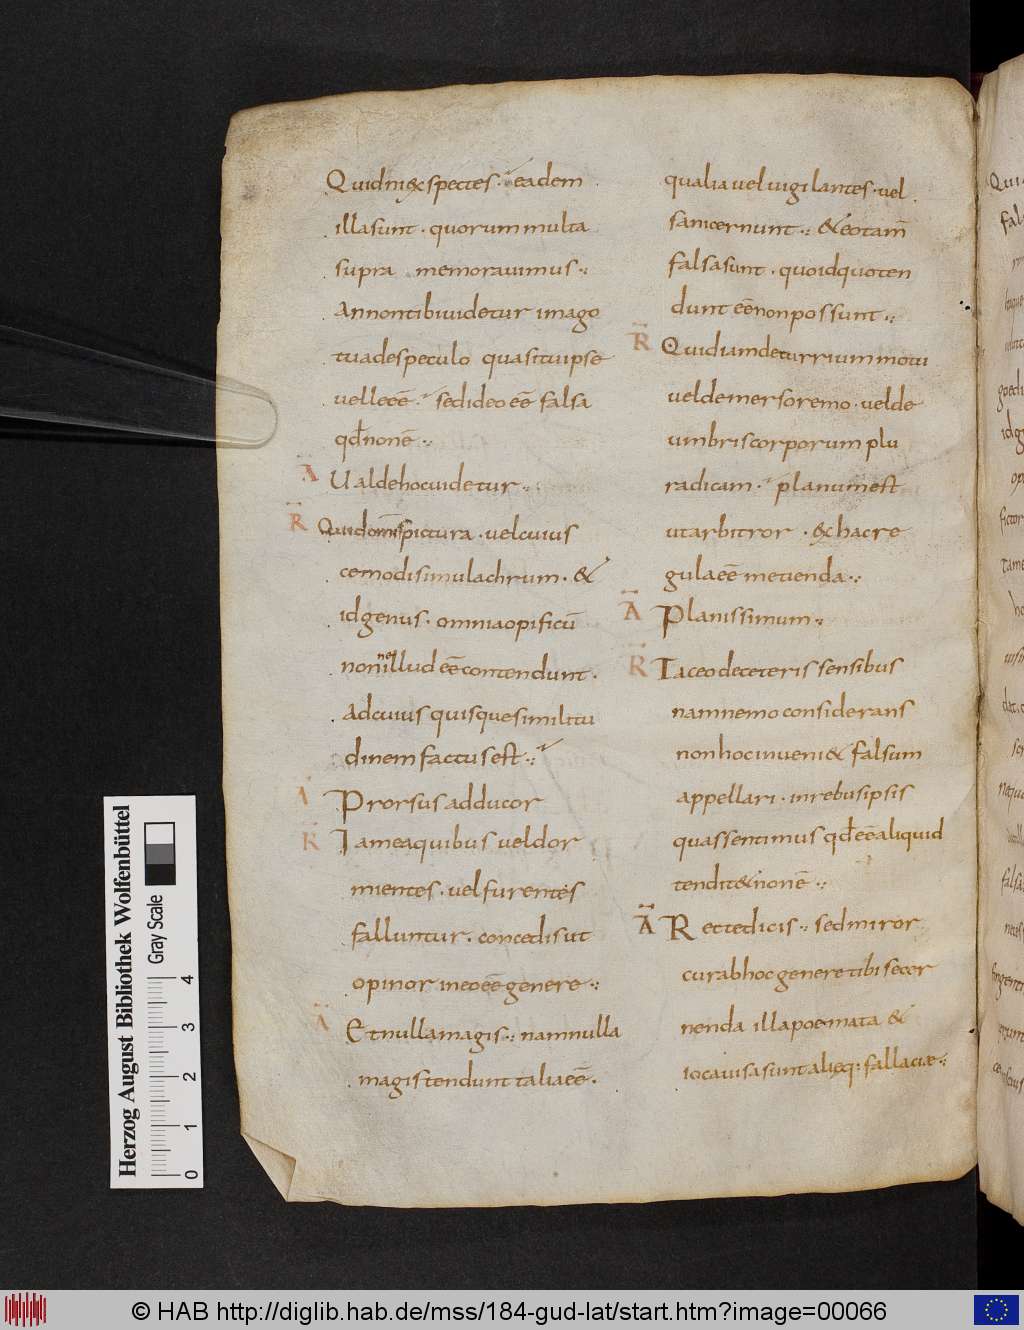 Quidni&spectes· eadem
illasunt· quorummulta
supra memorauimus·
Annontibiuidetur imago
tuadespeculo quasituipse
uelleēē· sedideo eē falsa
qđnonē·
Ā Ualdehocuidetur·
R̄ Quidomīspictura· uelcuius
cemodisimulachrum· &
idgenus· omniaopificū
nonneillud eēcontendunt·
Adcuius quisquesimilitu
dinem factusest·
Ā Prorsus adducor
R̄ Iameaquibus ueldor
mientes· uelfurentes
falluntur· concedisut
opinor ineoeēgenere·
Ā Etnullamagis· namnulla
magistendunt taliaeē·
qualiauel uigilantes· uel
sanicernunt· &eotam̄
falsasunt· quoidquoten
dunt eēnonpossunt·
R̄ Quidiamdeturriummotu
ueldemersoremo· uelde
umbriscorporum plu
radicam· planumest
utarbitror · &hacre
gulaeē metienda·
Ā Planissimum·
R̄ Taceodeceteris sensibus
namnemoconsiderans
nonhocinueni& falsum
appellari· inrebusipsis
quassentimus qđeēaliquid
tendit&nonē·
Ā Rectedicis· sedmiror
curabhocgeneretibisecer
nenda illapoemata &
iocauisasuntalieq: fallaciæ·
Herzog August Bibliothek Wolfenbüttel
Gray Scale
0 1 2 3 4
© HAB http://diglib.hab.de/mss/184-gud-lat/start.htm?image=00066